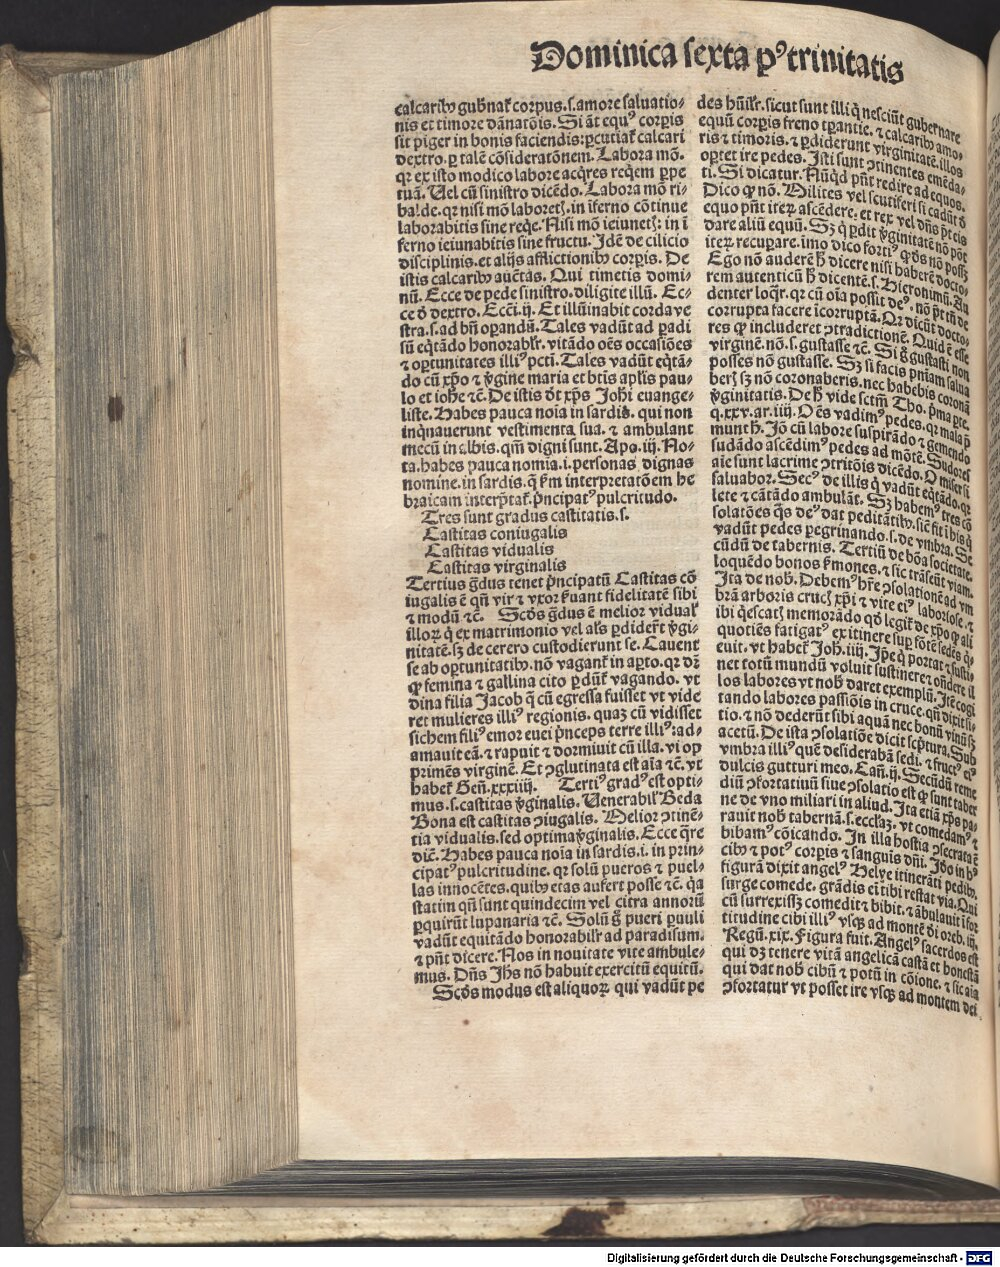 Dominica sexta pꝰ trinitatis
calcaribꝰ gub̃nat̃ corpus.s.amore saluatio⸗
nis et timore dãnatõis. Si aũt equꝰ corpis
sit piger in bonis faciendis: ꝑcutiat̃ calcari
dextro. ꝑ talẽ cõsideratõnem. Labora mõ.
qꝛ ex isto modico labore acq̃res req̃em ꝑpe
tuã. Uel cũ sinistro dicẽdo. Labora mõ ri⸗
balde. qꝛ nisi mõ laboretꝭ. in ĩferno cõtinue
laborabitis sine req̃e. Nisi mõ ieiunetꝭ: in ĩ
ferno ieiunabitis sine fructu. Jdẽ de cilicio
disciplinis. et alijs afflictionibꝰ corpis. De
istis calcaribꝰ auc̃tas. Qui timetis domi⸗
nũ. Ecce de pede sinistro. diligite illũ. Ec⸗
ce ð dextro. Ecc̃i.ij. Et illũinabit corda ve
stra.s.ad bñ oꝑandũ. Tales vadũt ad ꝑadi
sũ eq̃tãdo honorabilr̃. vitãdo oẽs occasiões
⁊ oꝑtunitates illiꝰ pcti. Tales vadũt eq̃tã⸗
do cũ xp̃o ⁊ v̾gine maria et btĩs apl̃is pau⸗
lo et ioh̃e ⁊c̃. De istis dt̃ xp̃s Joh̃i euange⸗
liste. Habes pauca noĩa in sardis. qui non
inq̃nauerunt vestimenta sua. ⁊ ambulant
mecũ in albis. qm̃ digni sunt. Apo. iij. No⸗
ta. habes pauca nomia.i.personas dignas
nomine. in sardis. q̃ ẜm interpretatõem he
braicam interp̃tat̃. p̃ncipatꝰ pulcritudo.
Tres sunt gradus castitatis.s.
Castitas coniugalis
Castitas vidualis
Castitas virginalis
Tertius g̃dus tenet p̃ncipatũ Castitas cõ
iugalis ẽ qñ vir ⁊ vxor ẜuant fidelitatẽ sibi
⁊ modũ ⁊c̃. Scd̃s g̃dus ẽ melior vidual̃
illoꝝ q̃ ex matrimonio vel al̃s ꝑdider̃t v̾gi⸗
nitatẽ. sꝫ de cetero custodierunt se. Cauent
se ab oꝑtunitatibꝰ. nõ vagant̃ in aꝑto. qꝛ dꝫ
ꝙ femina ⁊ gallina cito ꝑdũt̃ vagando. vt
dina filia Jacob q̃ cũ egressa fuisset vt vide
ret mulieres illiꝰ regionis. quaꝫ cũ vidisset
sichem filiꝰ emor euei p̃nceps terre illiꝰ: ad⸗
amauit eã. ⁊ rapuit ⁊ dormiuit cũ illa. vi op
primẽs virginẽ. Et ↄglutinata est aĩa ⁊c̃. vt
habet̃ Gen̄.xxxiiij. Tertiꝰ gradꝰ est opti⸗
mus.s.castitas v̾ginalis. Uenerabil̃ Beda
Bona est castitas ↄiugalis. Melior ↄtinẽ⸗
tia vidualis. sed optima v̾ginalis. Ecce q̃re
dic̃. Habes pauca noĩa in sardis.i. in prin⸗
cipatꝰ pulcritudine. qꝛ solũ pueros ⁊ puel⸗
las innocẽtes. quibꝰ etas aufert posse ⁊c̃. q̃a
statim qñ sunt quindecim vel citra annorũ
ꝑquirũt lupanaria ⁊c̃. Solũ g̃ pueri ꝑuuli
vadũt equitãdo honorabilr̃ ad paradisum.
⁊ pñt dicere. Nos in nouitate vite ambule⸗
mus. Dñs Jh̃s nõ habuit exercitũ equitũ.
Scd̃s modus est aliquoꝝ qui vadũt pe
des hũilr̃. sicut sunt illi q̃ nesciũt gubernare
equũ corpis freno tꝑantie. ⁊ calcaribꝰ amo⸗
ris ⁊ timoris. ⁊ ꝑdiderunt virginitatẽ. illos
oꝑtet ire pedes. Jsti sunt ↄtinentes emẽda⸗
ti. Si dicatur. Nũqd pñt redire ad equos.
Dico ꝙ nõ. Milites vel scutiferi si cadũt ð
equo pñt iteꝝ ascẽdere: et rex vel dñs põt eis
dare aliũ equũ. Sꝫ q̃ ꝑdit v̾ginitatẽ nõ põt
iteꝝ recuꝑare. imo dico fortiꝰ ꝙ dꝰs nõ possꝫ
Ego nõ auderẽ h̃ dicere nisi haberẽ docto⸗
rem autenticũ h̃ dicentẽ.s. Hieronimũ. Au
denter loq̃r. qꝛ cũ oĩa possit deꝰ. nõ põt tñ de
corrupta facere ĩcorruptã. Qꝛ dicũt docto⸗
res ꝙ includeret ↄtradictionẽ. Quid ẽ esse
virginẽ. nõ.s. gustasse ⁊c̃. Si g̃ gustasti non
posses nõ gustasse. Sꝫ si facis pñiam salua
berꝭ sꝫ nõ coronaberis. nec habebis coronã
v̾ginitatis. De h̃ vide sctm̃ Tho. p̃ma ꝑte.
q.xxv.ar.iiij. Oẽs vadimꝰ pedes. qꝛ mala p̃
munt h̃. Jõ cũ labore suspirãdo ⁊ gemendo
sudãdo ascẽdimꝰ pedes ad mõtẽ. Sudores
aĩe sunt lacrime ↄtritõis dicẽdo. O miser si
saluabor. Secꝰ de illis q̃ vadũt eq̃tãdo. qꝛ
lete ⁊ cãtãdo ambulãt. Sꝫ habemꝰ tres cõ
solatões q̃s deꝰ dat peditãtibꝰ. sic̃ fit ĩ his q̃
vadũt pedes ꝑegrinando.s. de vmbra. Se
cũdũ de tabernis. Tertiũ de bõa societate.
loquẽdo bonos ẜmones. ⁊ sic trãseũt viam.
Jta de nob̃. Debemꝰ hr̃e ↄsolationẽ ad vm
brã arboris crucꝭ xp̃i ⁊ vite eiꝰ laboriose. ⁊
ibi q̃escatꝭ memorãdo qd̾ legit̃ de xp̃o ꝙ ali
quotiẽs fatigatꝰ ex itinere supͣ fõtẽ sedẽs q̃⸗
euit. vt habet̃ Joh̃. iiij. Jp̃e q̃ portat ⁊ susti⸗
net totũ mundũ voluit sustinere ⁊ oñdere il
los labores vt nob̃ daret exemplũ. Jtẽ cogi
tando labores passiõis in cruce. qñ dixit si⸗
tio. ⁊ nõ dederũt sibi aquã nec bonũ vinũ sꝫ
acetũ. De ista ↄsolatiõe dicit sc̾ptura. Sub
vmbra illiꝰ quẽ desiderabã sedi. ⁊ fructꝰ eiꝰ
dulcis gutturi meo. Cañ.ij. Secũdũ reme
diũ ↄfortatiuũ siue ↄsolatio est ꝙ sunt taber
ne de vno miliari in aliud. Jta etiã xp̃s pa⸗
rauit nob̃ tabernã.s. eccl̃aꝫ. vt comedamꝰ ⁊
bibamꝰ cõicando. Jn illa hostia ↄsecrata ẽ
cibꝰ ⁊ potꝰ corpis ⁊ sanguis dñi. Jdo in hꝰ
figurã dixit angelꝰ Helye itinerãti pedibꝰ.
surge comede. grãdis eĩ tibi restat via. Qui
cũ surrexissꝫ comedit ⁊ bibit. ⁊ ãbulauit ĩ for
titudine cibi illiꝰ vsqꝫ ad montẽ ði oreb. iij.
Regũ. xix. Figura fuit. Angelꝰ sacerdos est
qui dꝫ tenere vitã angelicã castã et honestã
qui dat nob̃ cibũ ⁊ potũ in cõione. ⁊ sic aĩa
ↄfortatur vt posset ire vsqꝫ ad montem dei
Digitalisierung gefördert durch die Deutsche Forschungsgemeinschaft - DFG